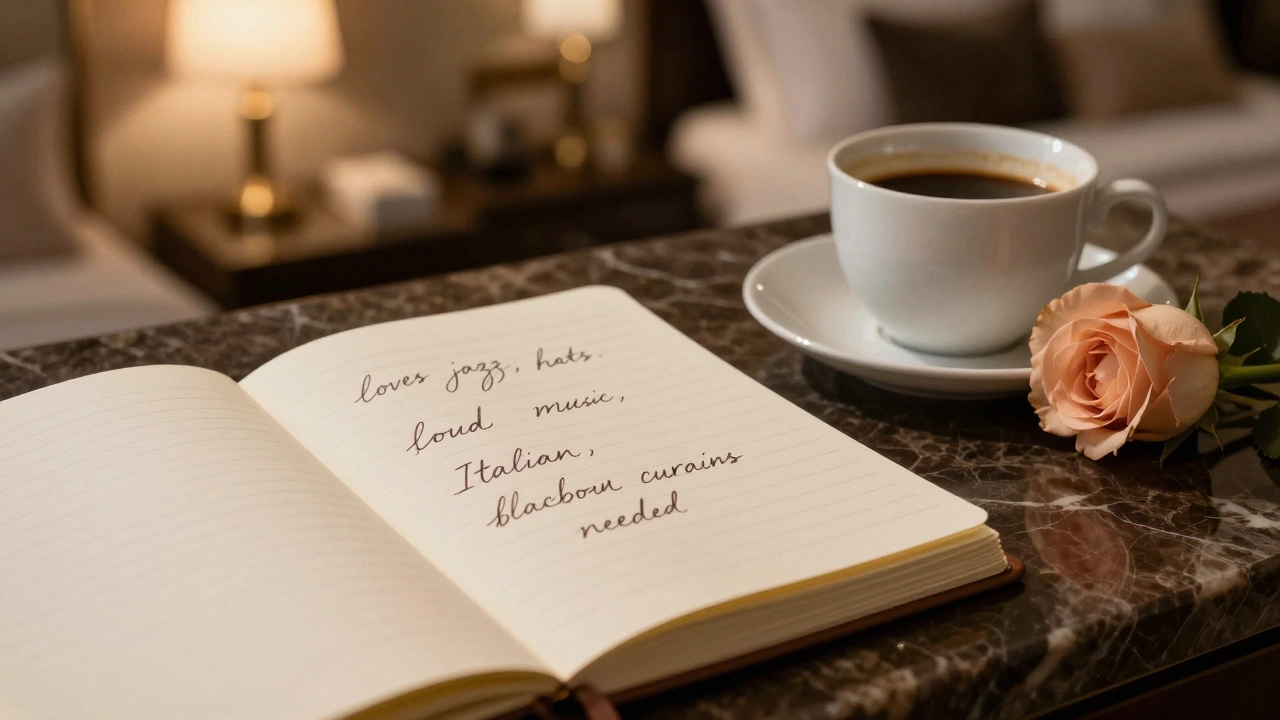 loves jazz, hats.
loud music,
Italian,
blacbou curains
needed